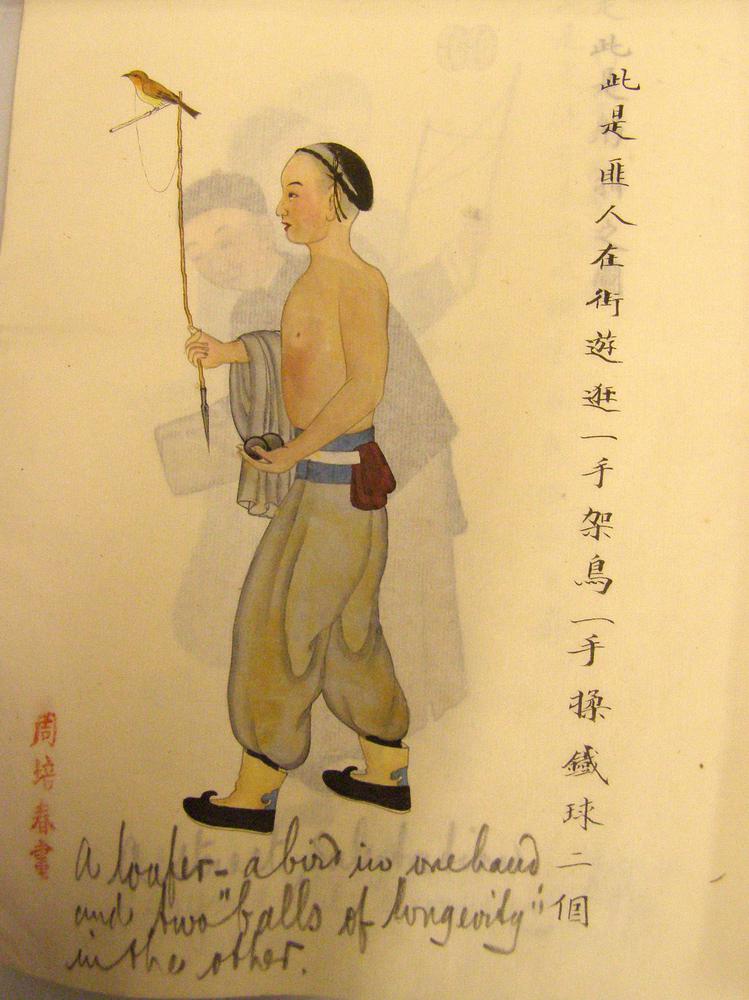 此是匪人在街遊逛一手架鳥一手揉鐵球二個
周培春畫
A loafer - a bird in one hand
and two "balls of longevity"
in the other.